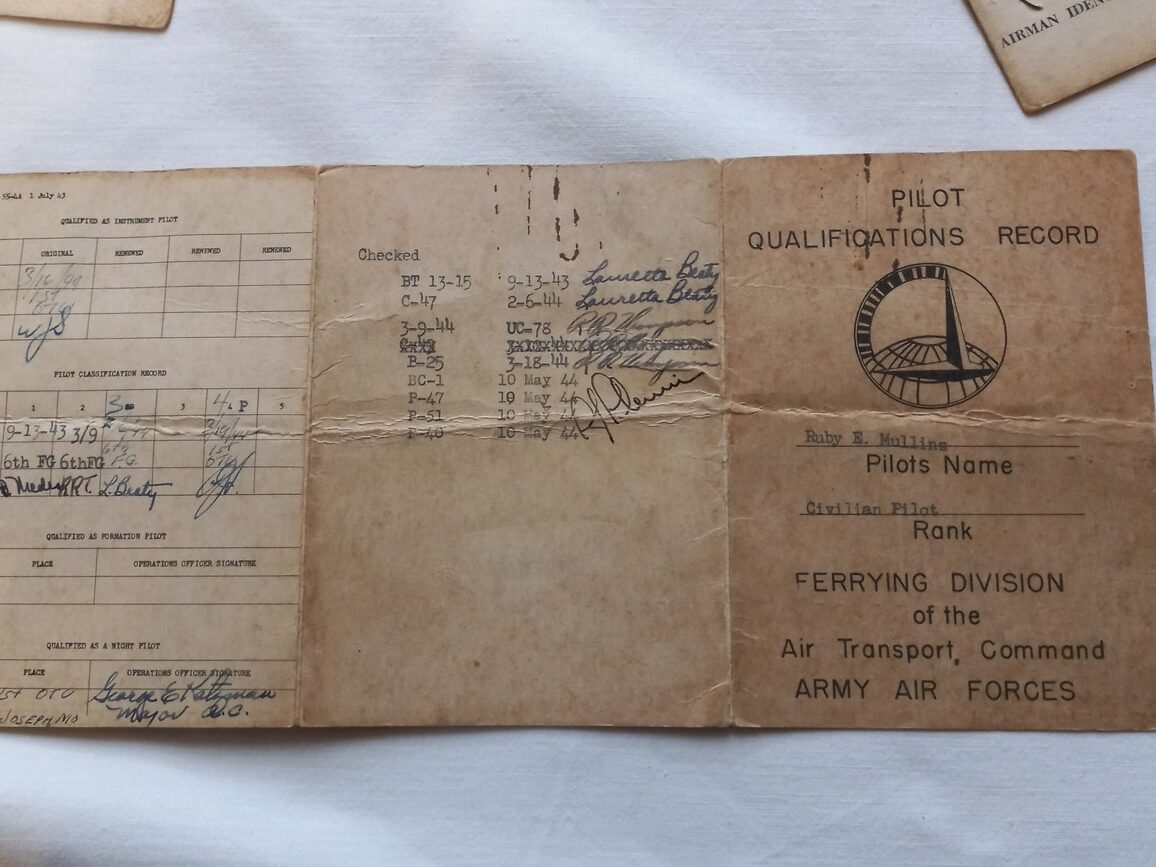 AIRMAN
55-4A 1 July 43
QUALIFIED AS INSTRUMENT PILOT
ORIGINAL RENEWED RENEWED RENEWED
3/16/44
1st
OTU
WJS
PILOT CLASSIFICATION RECORD
1 2 3 3 4 4 P 5
9-13-43 3/9
6th FG 6thFG F.G. 1st
RRT. L. Beaty OTU
QUALIFIED AS FORMATION PILOT
PLACE OPERATIONS OFFICER SIGNATURE
QUALIFIED AS A NIGHT PILOT
PLACE OPERATIONS OFFICER SIGNATURE
1ST OTU George E Katzman
JOSEPH, MO Major A.C.
Checked
BT 13-15 9-13-43 Lauretta Beaty
C-47 2-6-44 Lauretta Beaty
3-9-44 UC-78
B-25 3-18-44
BC-1 10 May 44
P-47 10 May 44
P-51 10 May 44
P-40 10 May 44
PILOT
QUALIFICATIONS RECORD
Ruby E. Mullins
Pilots Name
Civilian Pilot
Rank
FERRYING DIVISION
of the
Air Transport Command
ARMY AIR FORCES